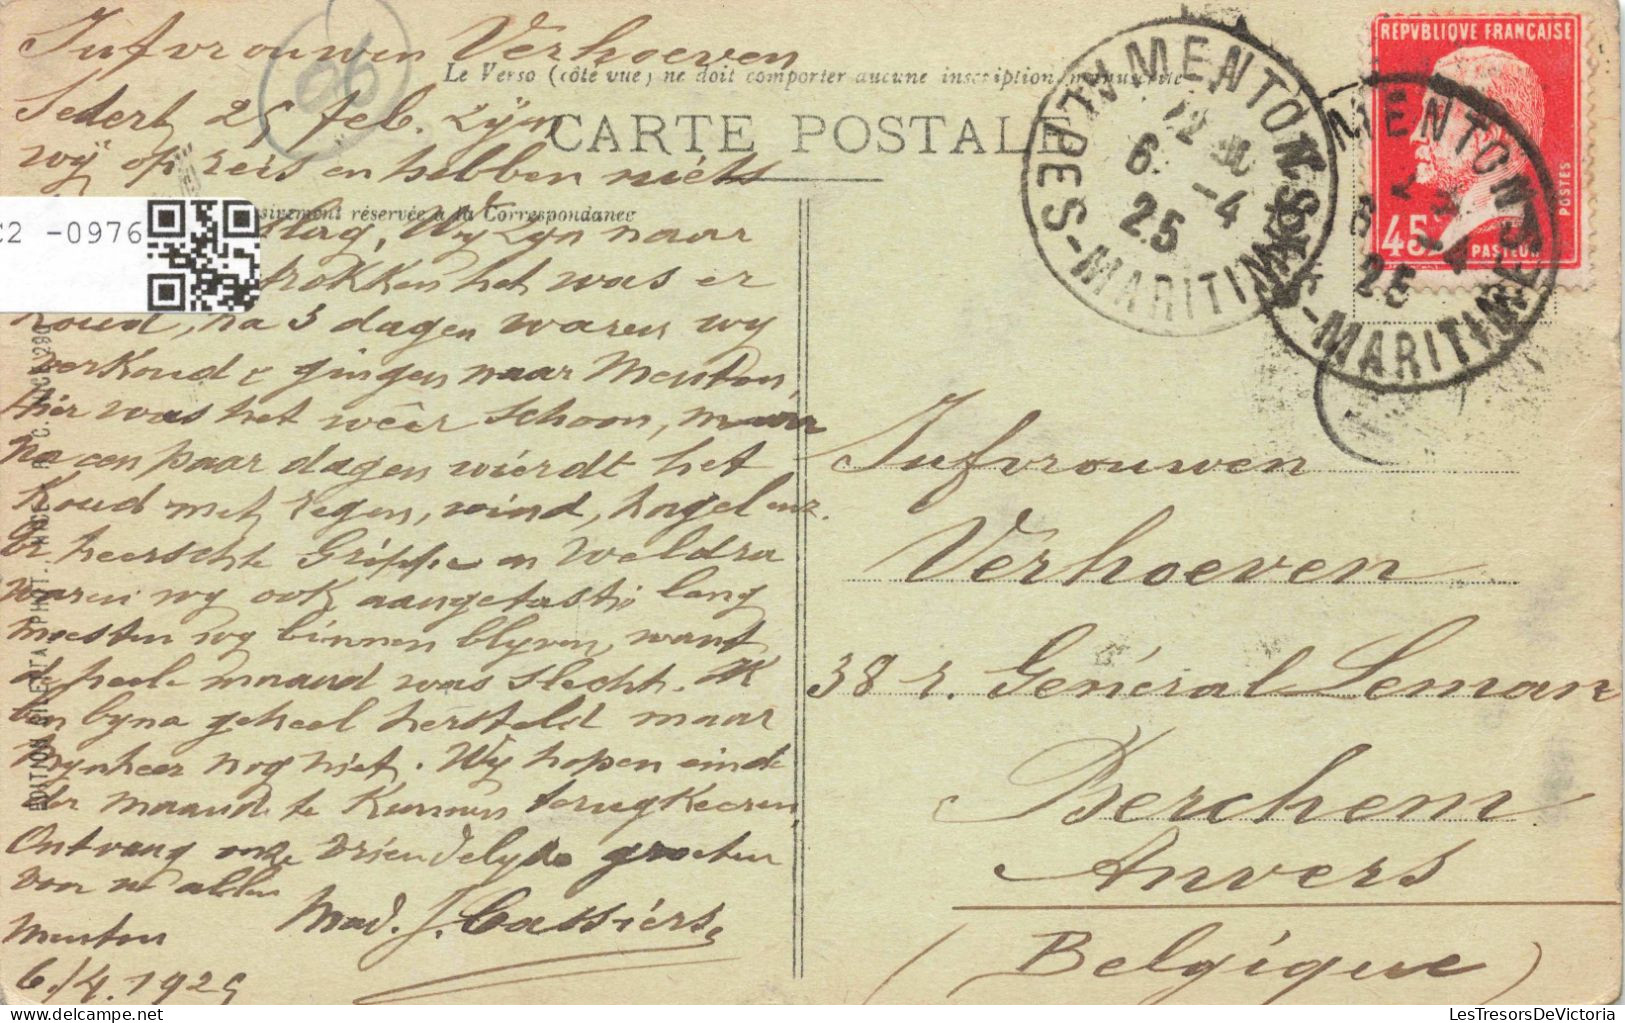 Jufvrouwen Verhoeven
Le Verso (côté vue) ne doit comporter aucune inscription manuscrite
Sedert 25 feb. zyn
CARTE POSTALE
wy op reis en hebben niets
réservée à la Correspondance
slag, Wy zyn naar
trokken het was er
koud, na 3 dagen waren wy
verkoud & gingen naar Menton,
hier was het wêer schoon, maar
na een paar dagen wierdt het
koud met regen, wind, hagel enz.
Er heerschte Grippe en weldra
waren wy ook aangetast; lang
moesten wy binnen blyven, want
de heele maand was slecht. Ik
ben byna geheel hersteld maar
Mynheer nog niet. Wy hopen einde
der maand te kunnen terugkeeren,
Ontvang onze vriendelyke groeten
van ons allen
Mad. J. Cassiers
Menton
6/4.1925
EDITION GILLETTA PHOT., NICE
C2 -0976
REPVBLIQVE FRANÇAISE
POSTES
45
PASTEUR
MENTON
12 30
6 -4
25
ALPES-MARITIMES
MENTON
6 -4
25
-MARITIMES
Jufvrouwen
Verhoeven
38 r. Général Leman
Berchem
Anvers
(Belgique)
LesTresorsDeVictoria